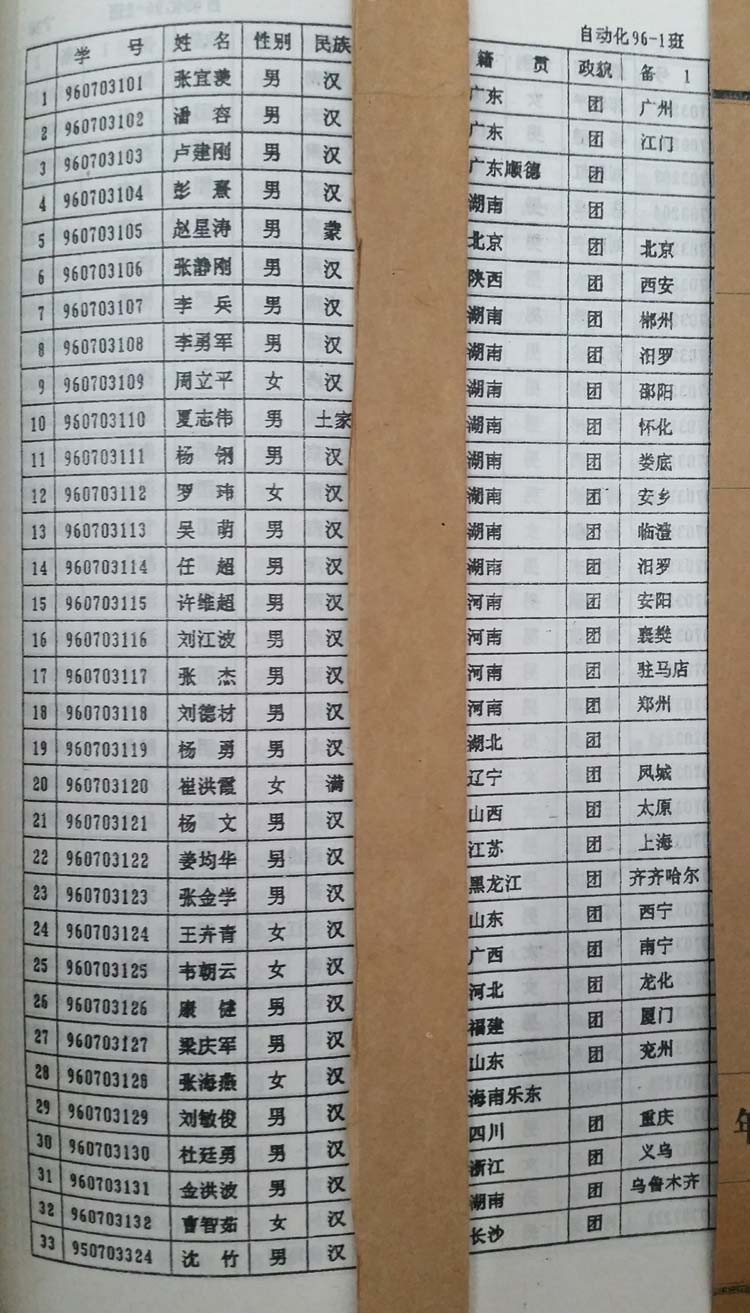 自动化96-1班
学 号 姓 名 性别 民族 籍 贯 政貌 备 1
1 960703101 张宜羡 男 汉 广东 团 广州
2 960703102 潘 容 男 汉 广东 团 江门
3 960703103 卢建刚 男 汉 广东顺德 团
4 960703104 彭 熹 男 汉 湖南 团
5 960703105 赵星涛 男 蒙 北京 团 北京
6 960703106 张静刚 男 汉 陕西 团 西安
7 960703107 李 兵 男 汉 湖南 团 郴州
8 960703108 李勇军 男 汉 湖南 团 汨罗
9 960703109 周立平 女 汉 湖南 团 邵阳
10 960703110 夏志伟 男 土家 湖南 团 怀化
11 960703111 杨 钢 男 汉 湖南 团 娄底
12 960703112 罗 玮 女 汉 湖南 团 安乡
13 960703113 吴 萌 男 汉 湖南 团 临澧
14 960703114 任 超 男 汉 湖南 团 汨罗
15 960703115 许维超 男 汉 河南 团 安阳
16 960703116 刘江波 男 汉 河南 团 襄樊
17 960703117 张 杰 男 汉 河南 团 驻马店
18 960703118 刘德材 男 汉 河南 团 郑州
19 960703119 杨 勇 男 汉 湖北 团
20 960703120 崔洪霞 女 满 辽宁 团 凤城
21 960703121 杨 文 男 汉 山西 团 太原
22 960703122 姜均华 男 汉 江苏 团 上海
23 960703123 张金学 男 汉 黑龙江 团 齐齐哈尔
24 960703124 王卉青 女 汉 山东 团 西宁
25 960703125 韦朝云 女 汉 广西 团 南宁
26 960703126 康 健 男 汉 河北 团 龙化
27 960703127 梁庆军 男 汉 福建 团 厦门
28 960703128 张海燕 女 汉 山东 团 兖州
29 960703129 刘敏俊 男 汉 海南乐东
30 960703130 杜廷勇 男 汉 四川 团 重庆
31 960703131 金洪波 男 汉 浙江 团 义乌
32 960703132 曹智茹 女 汉 湖南 团 乌鲁木齐
33 950703324 沈 竹 男 汉 长沙 团